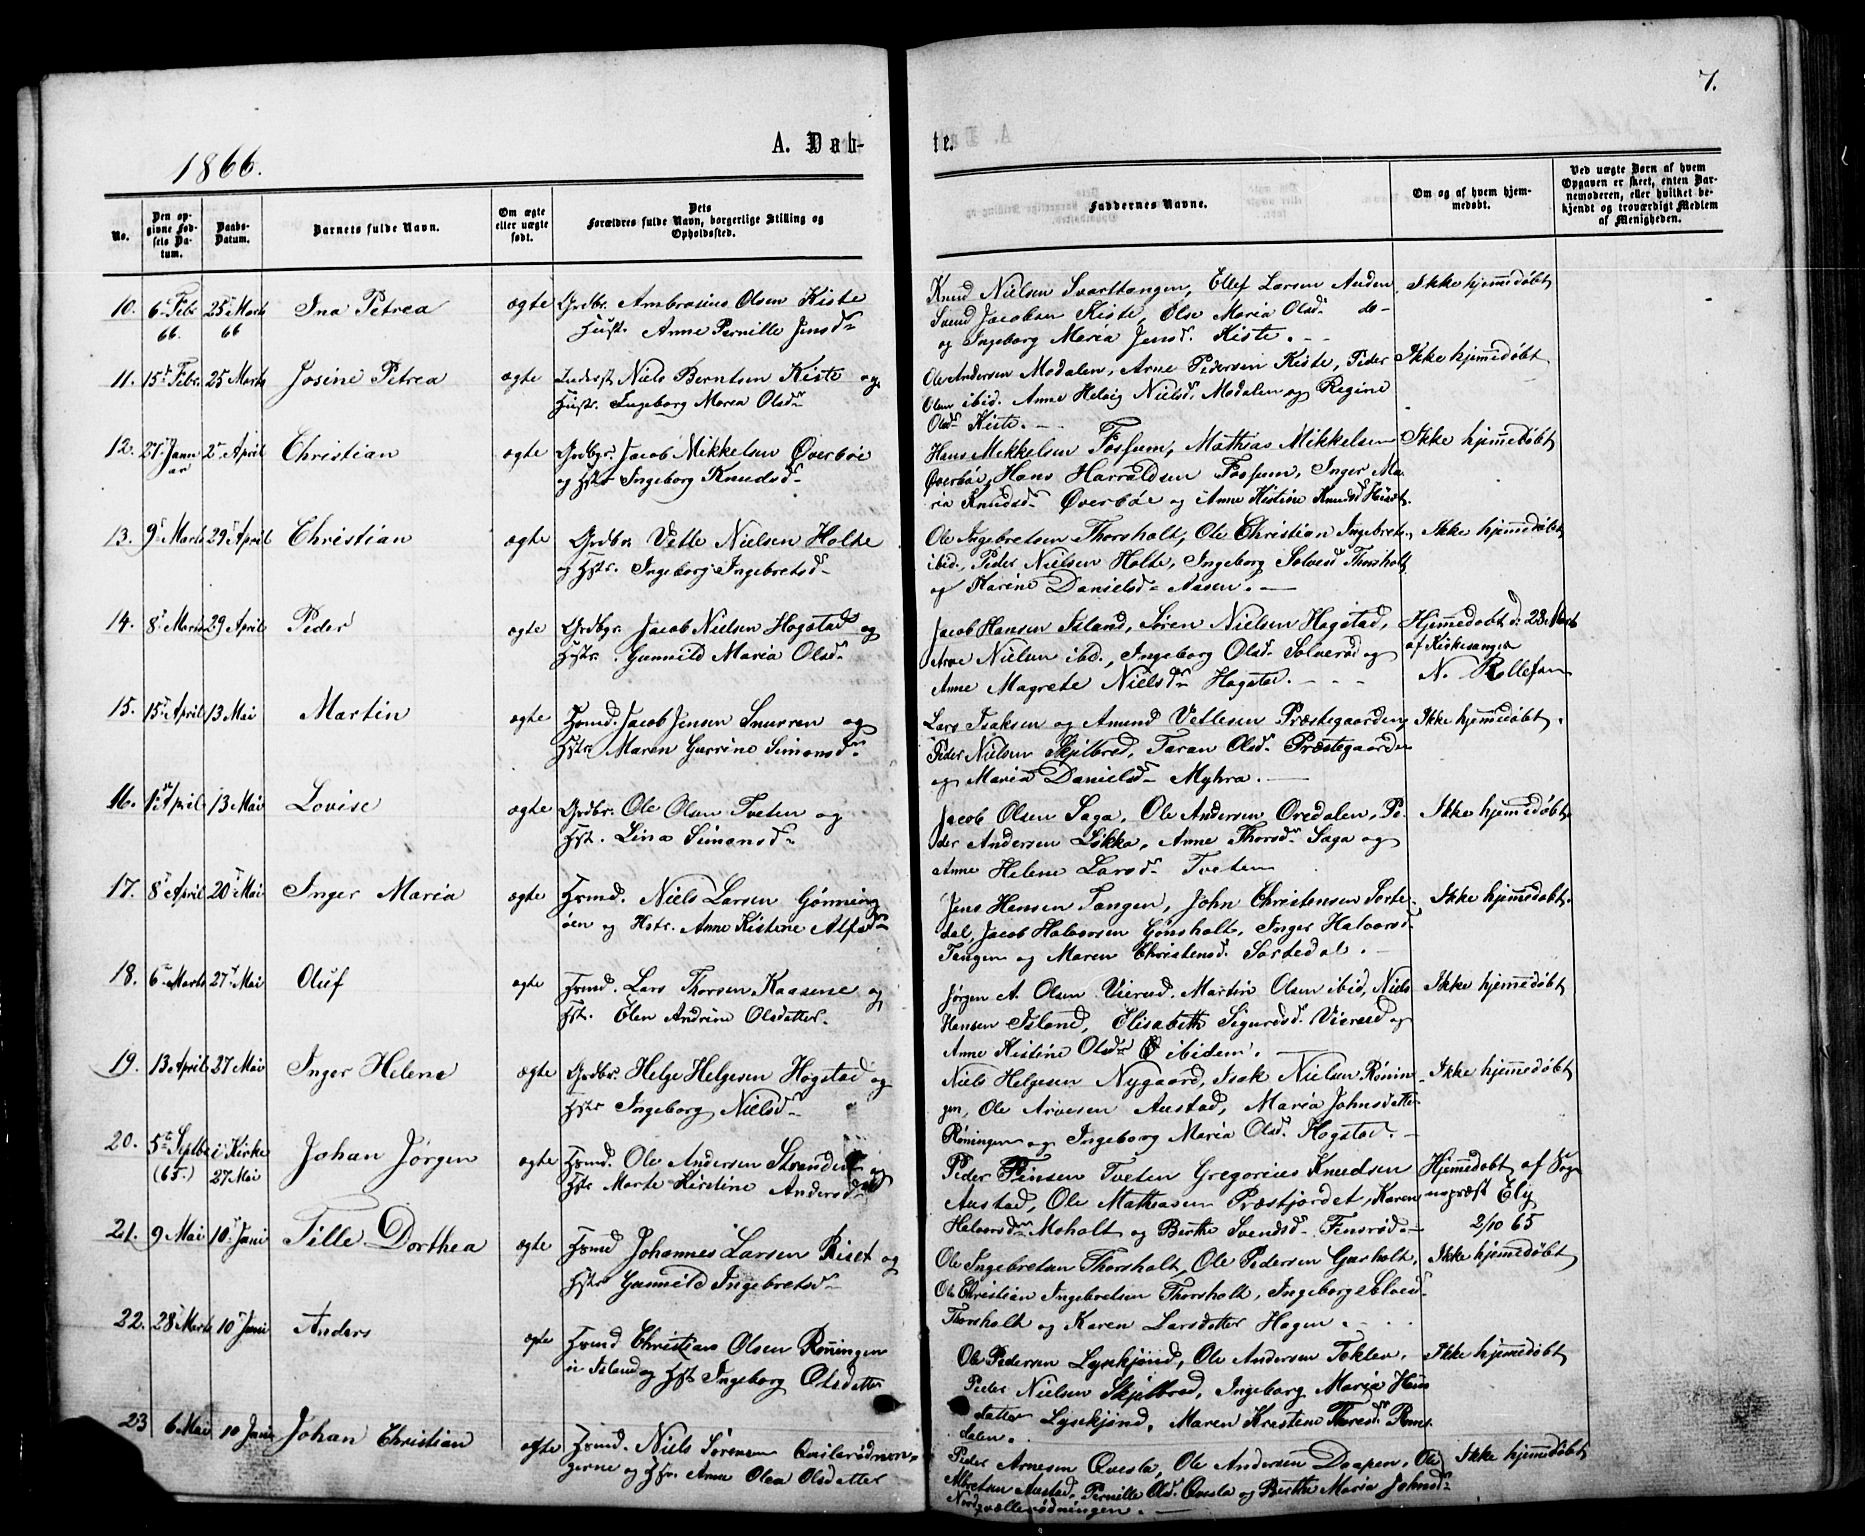 7.
1866.
A. Døb-
te.
No.
Den opgivne Fødsels Datum.
Daabs-Datum.
Barnets fulde Navn.
Om ægte eller uægte født.
Dets Forældres fulde Navn, borgerlige Stilling og Opholdssted.
Faddernes Navne.
Om og af hvem hjemmedøbt.
Ved uægte Børn af hvem Opgaven er skeet, enten Barnemoderen, eller hvilket bekjendt og troværdigt Medlem af Menigheden.
10. 6 Febr 66. 25 Marts 66 Ina Petrea ægte Grdbr. Ambrosius Olsen Kiste
Hust. Anne Pernille Jensd
Knud Nielsen Svarttangen, Ellef Larsen Anden
Svend Jacobsen Kiste, Else Maria Olsd. do-
og Ingeborg Maria Jensd. Kiste.
Ikke hjemmedøbt
11. 15 Febr. 25 Marts Josine Petrea ægte Inderst Niels Berntsen Kiste og
Hustr. Ingeborg Maria Olsd
Ole Andersen Modalen, Arne Pedersen Kiste, Peder
Olsen ibid. Anne Helvig Nielsd. Modalen og Regine
Olsd Kiste.
Ikke hjemmedøbt
12. 27 Januar 2 April Christian ægte Grdbgr. Jacob Mikkelsen Øverbøe
og Hstr Ingeborg Knudsd
Hans Mikkelsen Fossum, Mathias Mikkelsen
Øverbøe, Hans Harraldsen Fossum, Inger Ma-
ria Knudsd Øverbøe og Anne Kistine Knudsd
Ikke hjemmedøbt
13. 9 Marts 29 April Christian ægte Grdbr Vetle Nielsen Holte
og Hstr. Ingeborg Ingebretsd
Ole Ingebretsen Thorsholt, Ole Christian Ingebrets.
ibid., Peder Nielsen Holte, Ingeborg Solvesd Thorsholt
og Karine Danielsd Aasen.
Ikke hjemmedøbt
14. 8 Marts 29 April Peder ægte Grdbgr. Jacob Nielsen Hogstad og
Hstr. Gunnild Maria Olsd.
Jacob Hansen Island, Søren Nielsen Hogstad,
Arne Nielsen ibid., Ingeborg Olsd. Solverød og
Anne Magrete Nielsd Hogstad.
Hjemmedøbt d. 28 Marts
af Kirkesanger
N. Rollefsen
15. 15 April 13 Mai Martin ægte Hsmd. Jacob Jensen Snurren og
Hstr Maren Gurrine Simonsd
Lars Isaksen og Amund Vetlesen Præstegaarden,
Peder Nielsen Skjilbred, Taran Olsd. Præstegaarden
og Maria Danielsd Myhra.
Ikke hjemmedøbt.
16. 1 April 13 Mai Lovise ægte Grdbr. Ole Olsen Tveten og
Hst. Lina Simonsd
Jacob Olsen Saga, Ole Andersen Oredalen, Pe-
der Andersen Løkka, Anne Thorsd Saga og
Anne Helene Larsd Tveten
Ikke hjemmedøbt
17. 8 April 20 Mai Inger Maria ægte Hsmd. Niels Larsen Gønning
øen og Hstr. Anne Kistene Alfsd
Jens Hansen Tangen, John Christensen Sorte-
dal, Jacob Halvorsen Gonsholt, Inger Halvorsd
Tangen og Maren Christensd. Sortedal.
Ikke hjemmedøbt.
18. 6 Marts 27 Mai Oluf ægte Hsmd. Lars Thorsen Kaasene og
Hst. Elen Andrine Olsdatter.
Jørgen A. Olsen Vierød. Martin Olsen ibid, Niels
Hansen Island, Elisabeth Sigurdsd. Vierød og
Anne Kistine Olsd ibidem.
Ikke hjemmedøbt
19. 13 April 27 Mai Inger Helene ægte Grdbr. Helge Helgesen Hogstad og
Hstr Ingeborg Nielsd
Niels Helgesen Nygaard, Isak Nielsen Rønin-
gen, Ole Arvesen Austad, Maria Johnsdatter
Røningen og Ingeborg Maria Olsd. Hogstad.
Ikke hjemmedøbt
20. 5 Septbr (65.) i Kirke 27 Mai Johan Jørgen ægte Hsmd. Ole Andersen Stranden og
Hstr Marte Kirstine Andersd
Peder Finsen Tveten Gregorius Knudsen
Austad, Ole Mathiasen Præstjordet, Karen
Halvorsd Moholt og Berthe Svendsd. Fensrød
Hjemmedøbt af Sog-
nepræst Ely
2/10 65
21. 9 Mai 10 Juni Tille Dorthea ægte Hsmd Johannes Larsen Riset og
Hstr Gunnild Ingebretsd
Ole Ingebretsen Thorsholt, Ole Pedersen Gusholt,
Ole Christian Ingebretsen Thorsholt, Ingeborg Solvesd
Thorsholt og Karen Larsdatter Hagen.
Ikke hjemmedøbt
22. 28 Marts 10 Juni Anders ægte Hsmd Christian Olsen Røningen
u Island og Hst Ingeborg Olsdatter
Ole Pedersen Lysekjønd, Ole Andersen Teklev.
Peder Nielsen Skjelbred, Ingeborg Maria Hans
datter Lysekjønd, Maren Kirstine Thoresd. Roms-
dalen.
Ikke hjemmedøbt
23 6 Mai 10 Juni Johan Christian ægte Hsmd. Niels Sørensen Qvislerødnin-
gerne og Hstr. Anne Olea Olsdatter
Peder Arnesen Qvesla, Ole Andersen Daapen, Ole
Abretsen Austad, Pernille Olsd. Qvesla og Berthe Maria Johnsd
Nordgvællerødningen.
Ikke hjemmedøbt